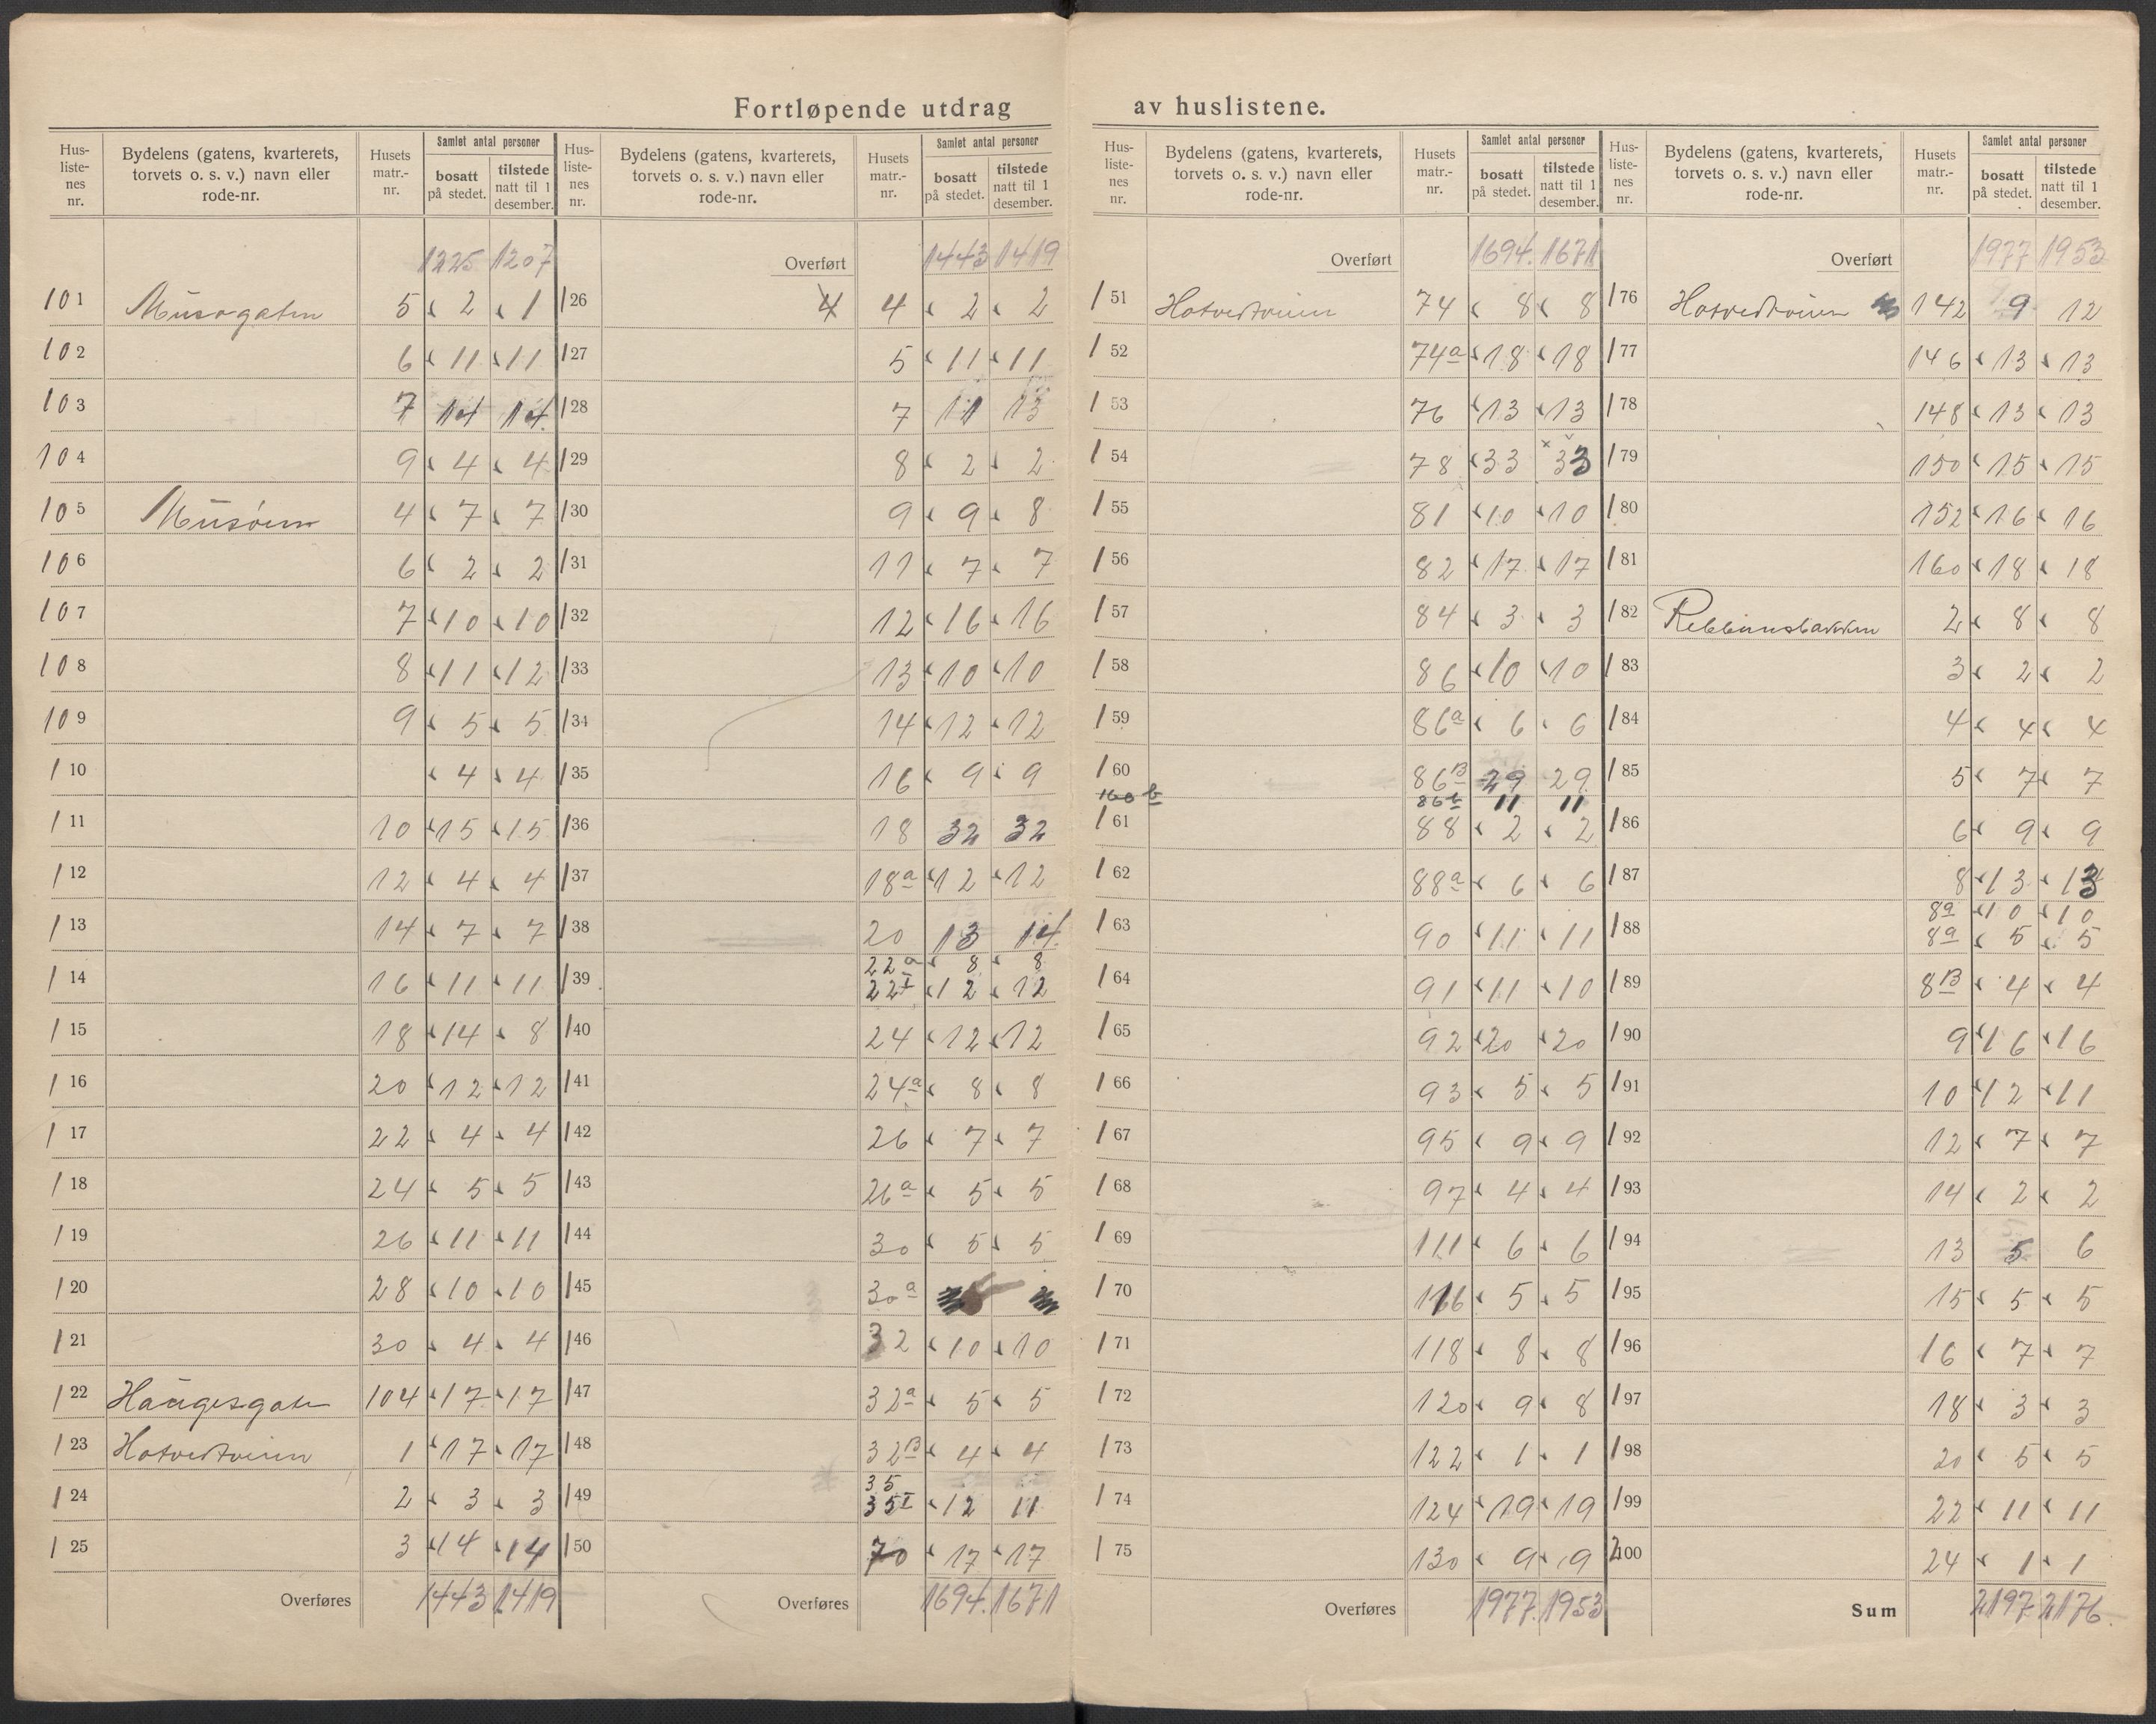 Fortløpende utdrag av huslistene.
Hus-listenes nr. Bydelens (gatens, kvarterets, torvets o. s. v.) navn eller rode-nr. Husets matr.-nr. Samlet antal personer bosatt på stedet. tilstede natt til 1 desember.
1225 1207
101 5 2 1
102 6 11 11
103 7 14 14
104 9 4 4
105 4 7 7
106 6 2 2
107 7 10 10
108 8 11 12
109 9 5 5
110 4 4
111 10 15 15
112 12 4 4
113 14 7 7
114 16 11 11
115 18 14 8
116 20 12 12
117 22 4 4
118 24 5 5
119 26 11 11
120 28 10 10
121 30 4 4
122 Haugesgate 104 17 17
123 Hotvedtveien 1 17 17
124 2 3 3
125 3 14 14
Overføres 1443 1419
Hus-listenes nr. Bydelens (gatens, kvarterets, torvets o. s. v.) navn eller rode-nr. Husets matr.-nr. Samlet antal personer bosatt på stedet. tilstede natt til 1 desember.
Overført 1443 1419
126 4 4 2 2
127 5 11 11
128 7 11 13
129 8 2 2
130 9 9 8
131 11 7 7
132 12 16 16
133 13 10 10
134 14 12 12
135 16 9 9
136 18 32 32
137 18a 12 12
138 20 13 14
22a 8 8
139 22I 12 12
140 24 12 12
141 24a 8 8
142 26 7 7
143 26a 5 5
144 30 5 5
145 30a
146 32 10 10
147 32a 5 5
148 32B 4 4
35
149 35I 12 11
150 70 17 17
Overføres 1694 1671
Hus-listenes nr. Bydelens (gatens, kvarterets, torvets o. s. v.) navn eller rode-nr. Husets matr.-nr. Samlet antal personer bosatt på stedet. tilstede natt til 1 desember.
Overført 1694 1671
151 Hotvedtveien 74 8 8
152 74a 18 18
153 76 13 13
154 78 33 33
155 81 10 10
156 82 17 17
157 84 3 3
158 86 10 10
159 86a 6 6
160 86B 29 29
160 b 86b 11 11
161 88 2 2
162 88a 6 6
163 90 11 11
164 91 11 10
165 92 20 20
166 93 5 5
167 95 9 9
168 97 4 4
169 111 6 6
170 116 5 5
171 118 8 8
172 120 9 8
173 122 1 1
174 124 19 19
175 130 9 9
Overføres 1977 1953
Hus-listenes nr. Bydelens (gatens, kvarterets, torvets o. s. v.) navn eller rode-nr. Husets matr.-nr. Samlet antal personer bosatt på stedet. tilstede natt til 1 desember.
Overført 1977 1953
176 Hotvedtveien 142 9 12
177 146 13 13
178 148 13 13
179 150 15 15
180 152 16 16
181 160 18 18
182 Rebbansbakken 2 8 8
183 3 2 2
184 4 4 4
185 5 7 7
186 6 9 9
187 8 13 13
8a 10 10
188 8a 5 5
189 8B 4 4
190 9 16 16
191 10 12 11
192 12 7 7
193 14 2 2
194 13 5 6
195 15 5 5
196 16 7 7
197 18 3 3
198 20 5 5
199 22 11 11
200 24 1 1
Sum 2197 2176